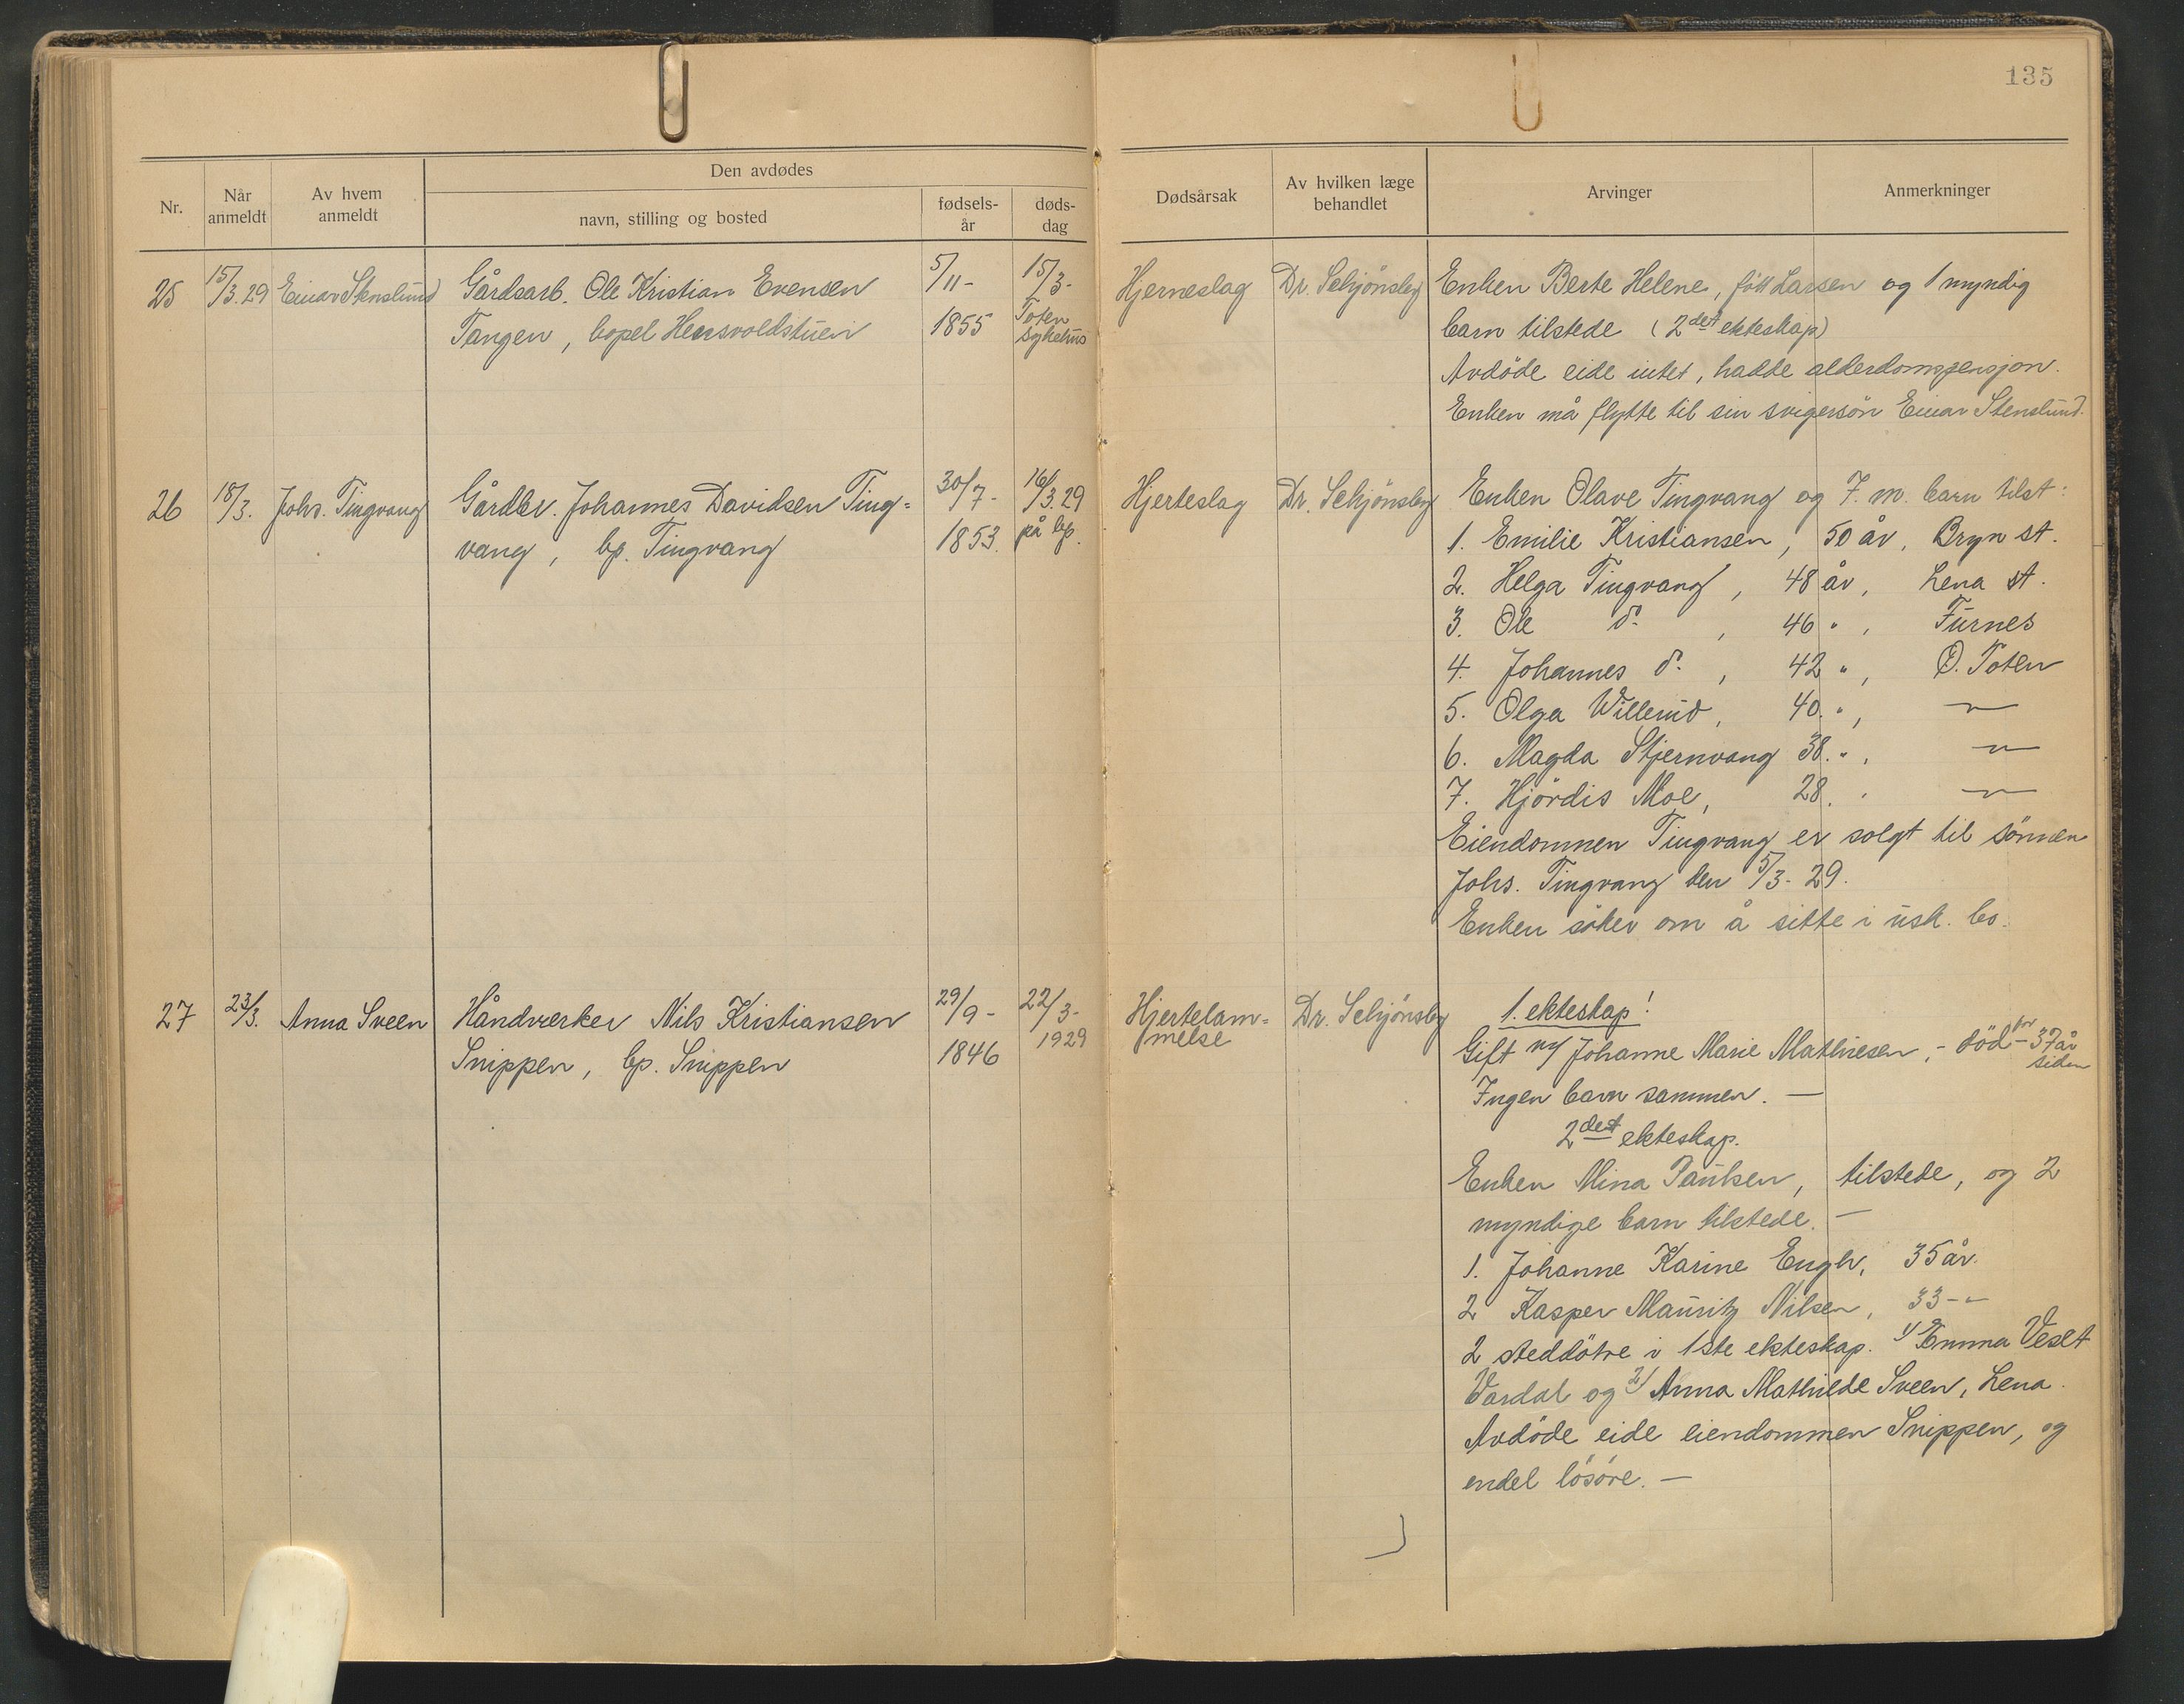 135
Den avdødes
Nr.
Når anmeldt
Av hvem anmeldt
navn, stilling og bosted
fødsels-år
døds-dag
Dødsårsak
Av hvilken læge behandlet
Arvinger
Anmerkninger
25 15/3.29 Einar Stenslund Gårdsarb. Ole Kristian Evensen 5/11- 15/3- Hjerneslag Dr. Schjönsby Enken Berte Helene, fött Larsen og 1 myndig
Tangen, bopel 1855 Toten sykehus barn tilstede (2det ekteskap)
Avdöde eide intet, hadde alderdomspensjon.
Enken må flytte til sin svigersön Einar Stenslund.
26 18/3. Johs. Tingvang Gårdbr. Johannes Davidsen Ting= 30/7- 16/3.29 Hjerteslag Dr. Schjönsby Enken Olave Tingvang og 7. m. barn tilst:
vang, bp. Tingvang 1853. på bp. 1. Emilie Kristiansen, 50 år, Bryn st.
2. Helga Tingvang, 48 år, Lena st.
3. Ole do , 46 " , Furnes
4. Johannes do , 42 " , Ö. Toten
5. Olga Willerud, 40. " , — " —
6. Magda Stjernvang 38. " , — " —
7. Hjördis Moe, 28. " — " —
Eiendommen Tingvang er solgt til sönnen
Johs. Tingvang den 5/3-29.
Enken söker om å sitte i usk. bo.
27 23/3. Anna Sveen Håndverker Nils Kristiansen 29/9- 22/3- Hjertelam= Dr. Schjönsby 1. ekteskap!
Snippen, bp. Snippen 1846 1929 melse Gift m/ Johanne Marie Mathiesen, - död for - 37 år siden
Ingen barn sammen. —
2det ekteskap.
Enken Mina Paulsen, tilstede, og 2
myndige barn tilstede. —
1. Johanne Karine Engh, 35 år.
2 Kasper Mauritz Nilsen, 33 - " -
2 steddötre i 1ste ekteskap. 1/ Emma Veset
Vardal og 2/ Anna Mathilde Sveen, Lena.
Avdöde eide eiendommen Snippen, og
endel lösöre. —